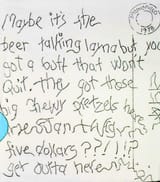 Maybe it's the
beer talking lama but you
got a butt that won't
quit. the got those
big chewy pretzels here
five dollars??!!!?
get outta here